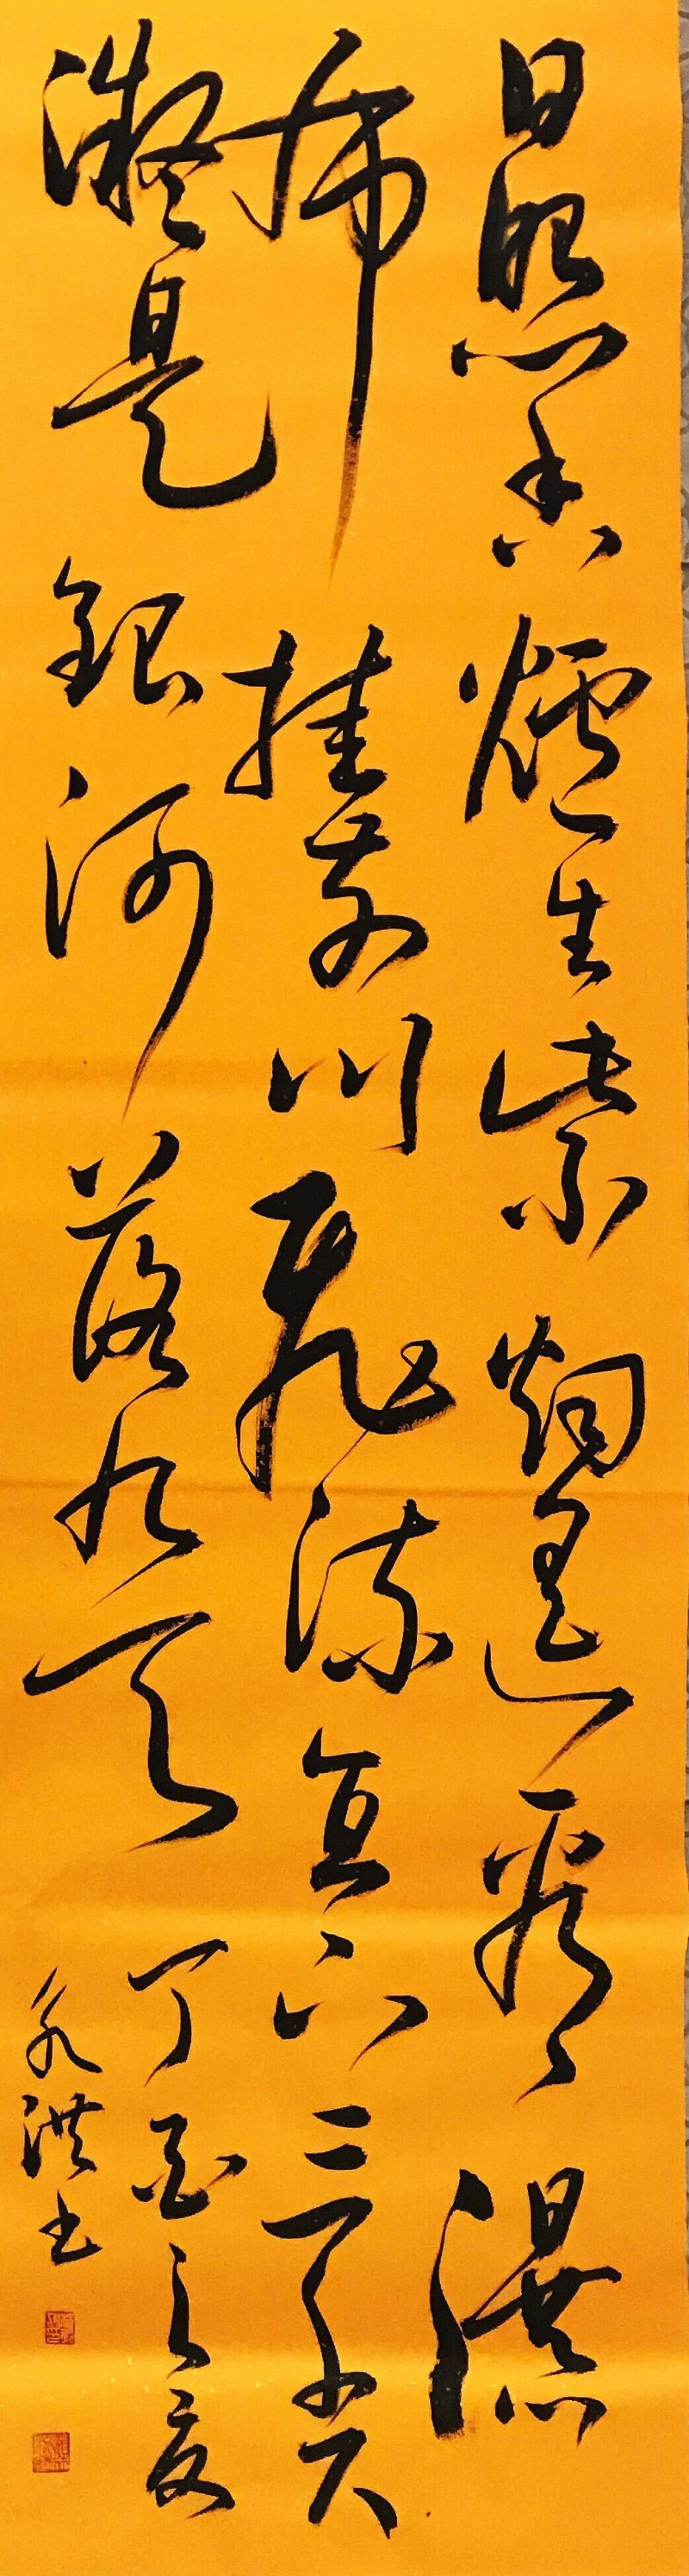 日照香爐生紫烟遙看瀑
布挂前川飛流直下三千尺
凝是銀河落九天丁酉之夏
永洪书